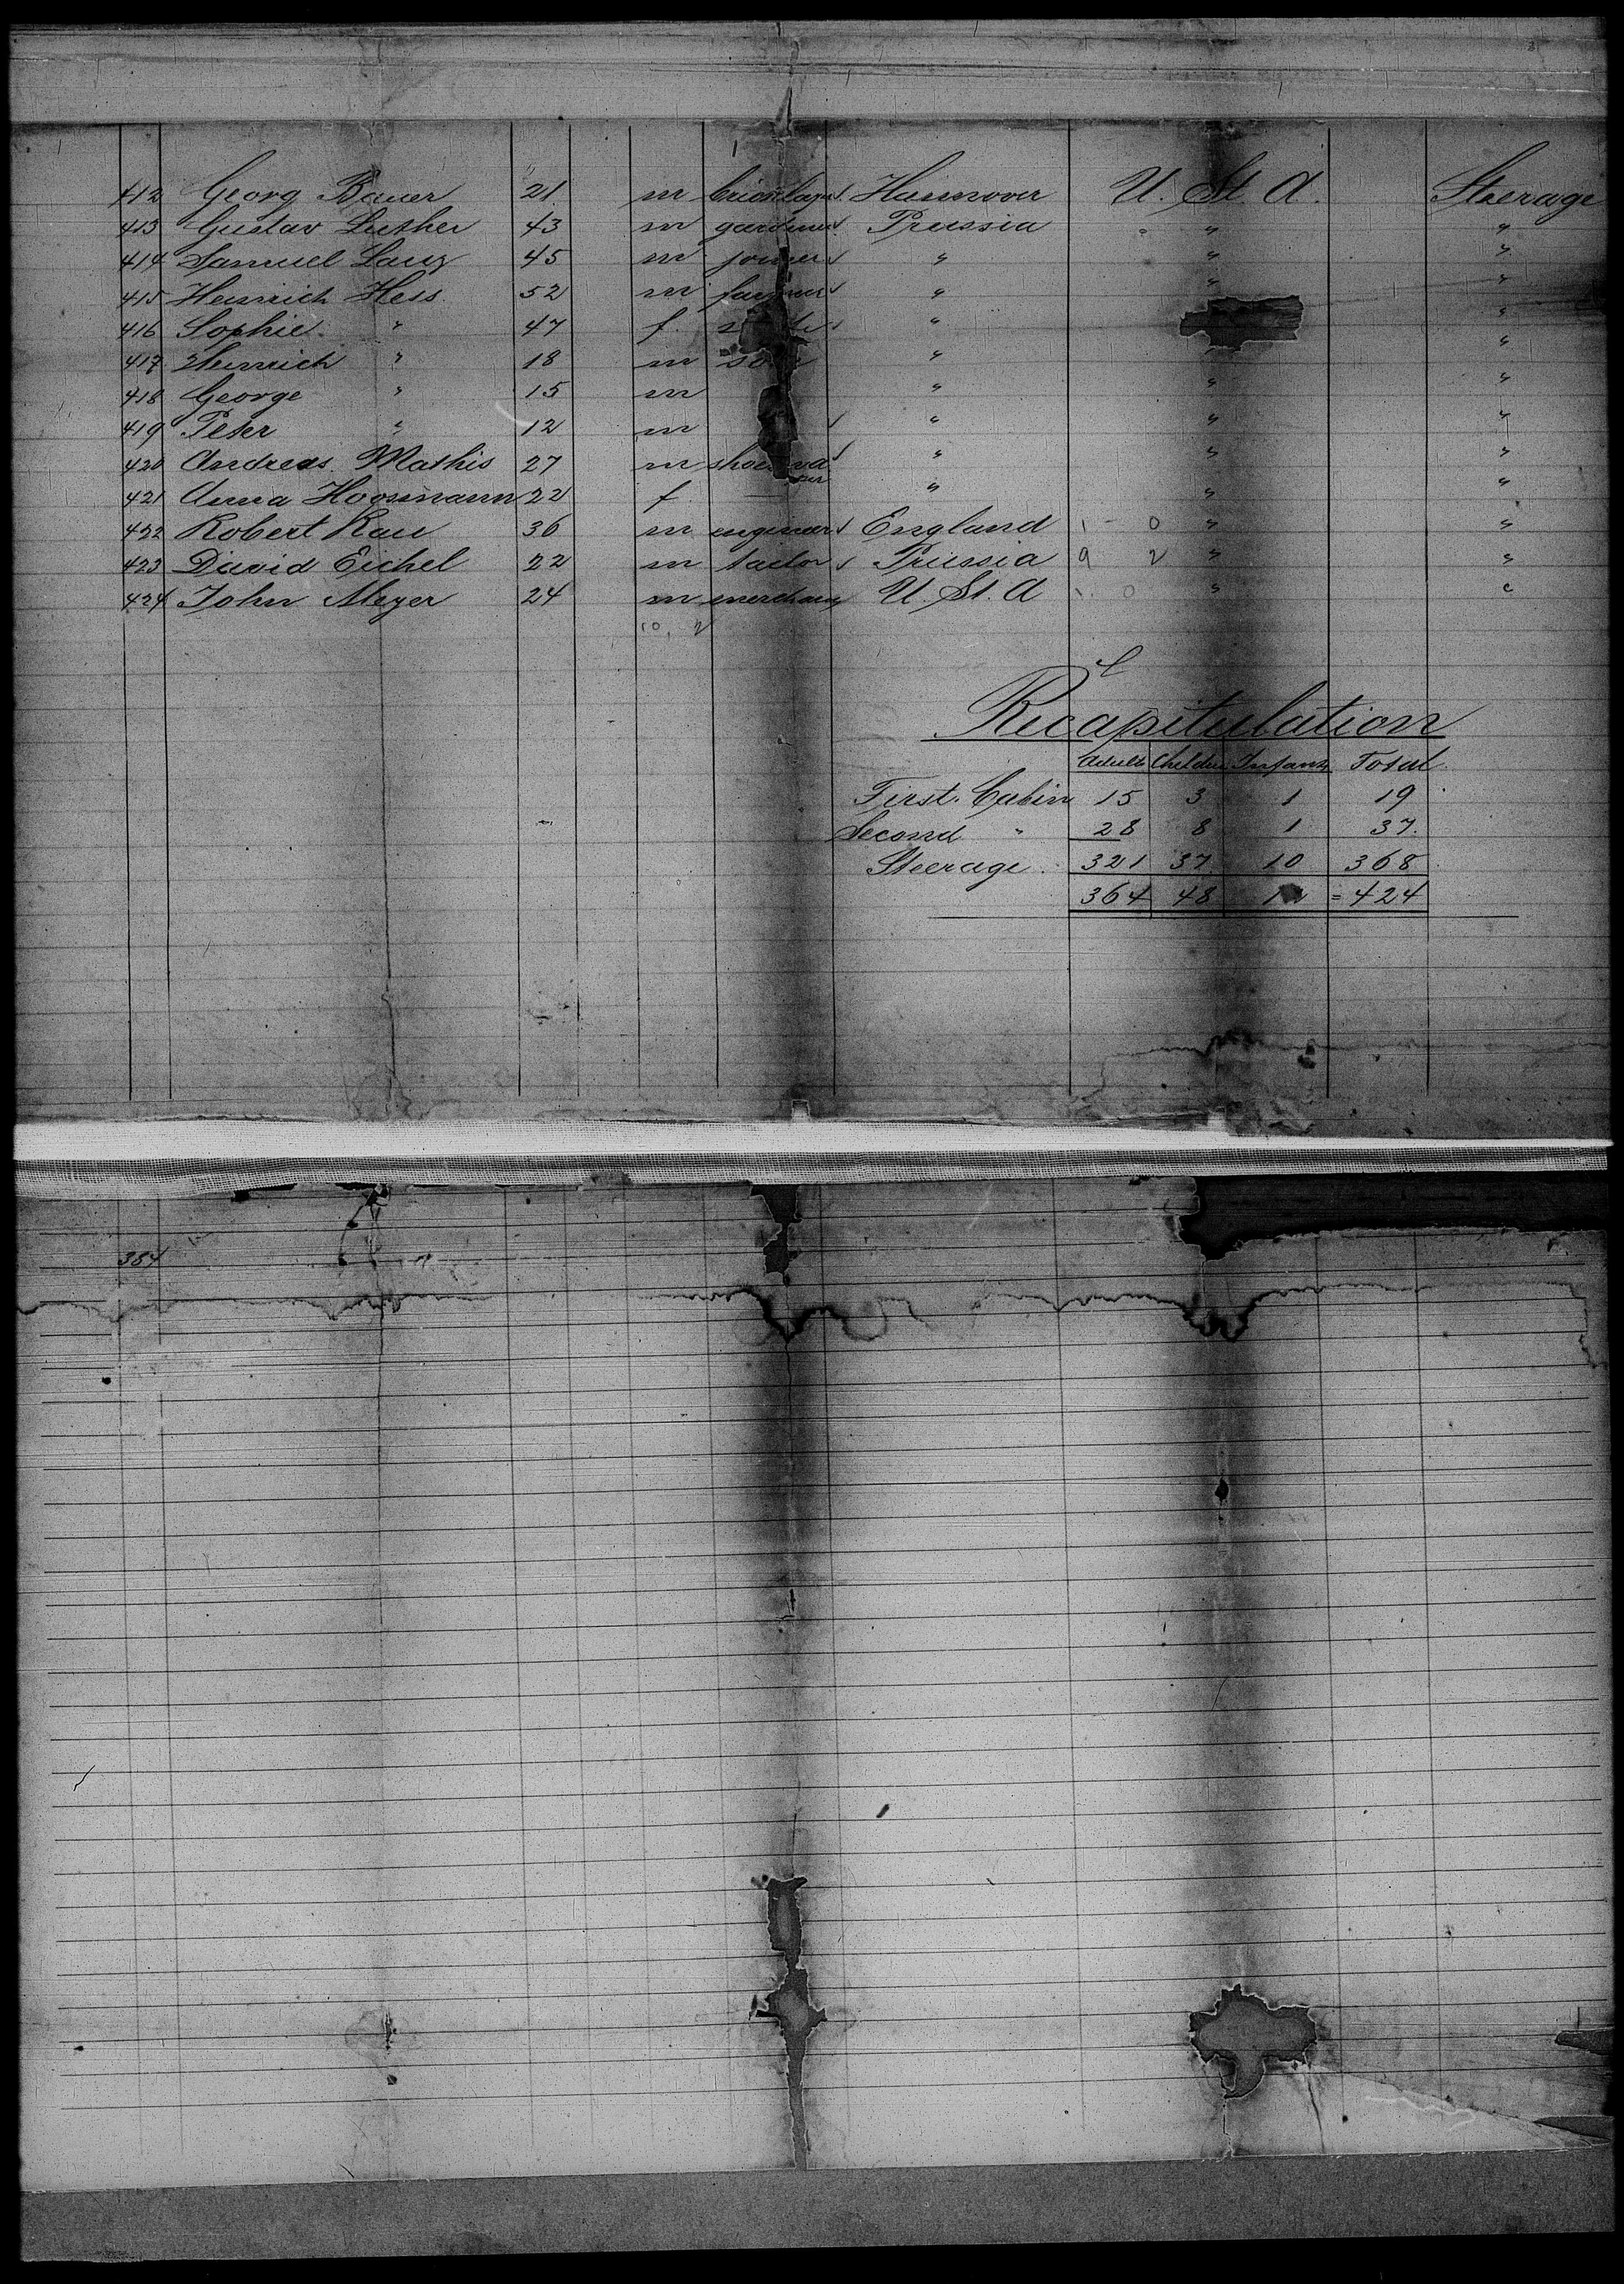 412 Georg Bauer 21 m bricklayer Hannover U. St. A. Steerage
413 Gustav Luther 43 m gardener Prussia " "
414 Samuel Lang 45 m joiner " " "
415 Heinrich Hess 52 m farmer " " "
416 Sophie " 47 f. " "
417 Heinrich " 18 m son " " "
418 George " 15 m " " "
419 Peter " 12 m " " "
420 Andreas Mathis 27 m " " "
421 Anna 22 f — " " "
422 Robert Rau 36 m engineer England 1 - 0 " "
423 David Eichel 22 m tailor Prussia 9 2 " "
424 John Meyer 24 m merchant U. St. A 1. 0 " "
10. 2
Recapitulation
Adults Children Infants Total
First. Cabin 15 3 1 19
Second " 28 8 1 37.
Steerage 321 37 10 368
364 48 = 424
384